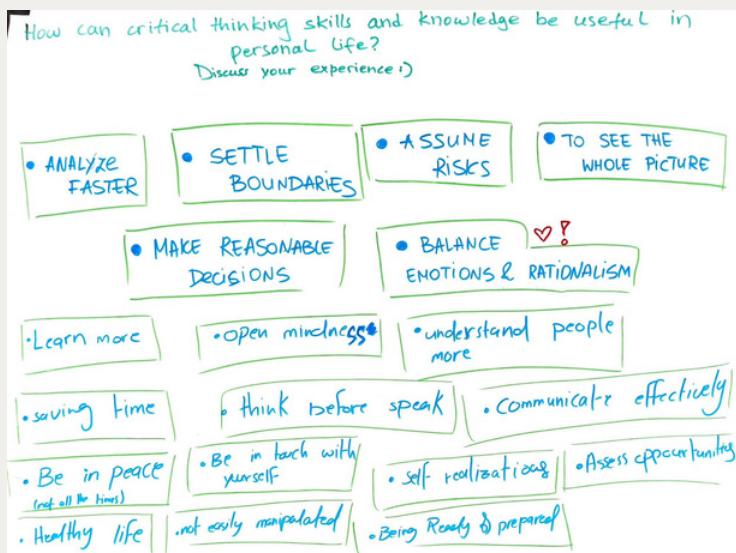 How can critical thinking skills and knowledge be useful in
personal life?
Discuss your experience :)
• ANALYZE
FASTER
• SETTLE
BOUNDARIES
• ASSUME
RISKS
• TO SEE THE
WHOLE PICTURE
• MAKE REASONABLE
DECISIONS
• BALANCE ♡!
EMOTIONS & RATIONALISM
• Learn more
• open mindness
• understand people
more
• saving time
• think before speak
• Communicate effectively
• Be in peace
(not all the times)
• Be in touch with
yourself
• self realizations
• Assess oppourtunities
• Healthy life
• not easily manipulated
• Being Ready & prepared